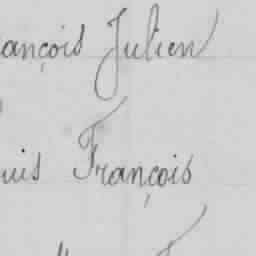 ançois Julien
uis François